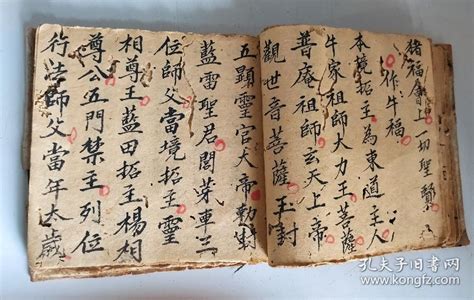 猪福會上一切聖賢
作牛福
本境招王為東道主人
牛家祖師大力王菩薩
普庵祖師玄天上帝
觀世音菩薩王封
五顯靈官大帝勅封
藍雷聖君閭芽車三
位師父當境招王靈
相尊王藍田招王楊相
尊公五門禁主列位
行法師父當年太歲
孔夫子旧書网
kongfz.com